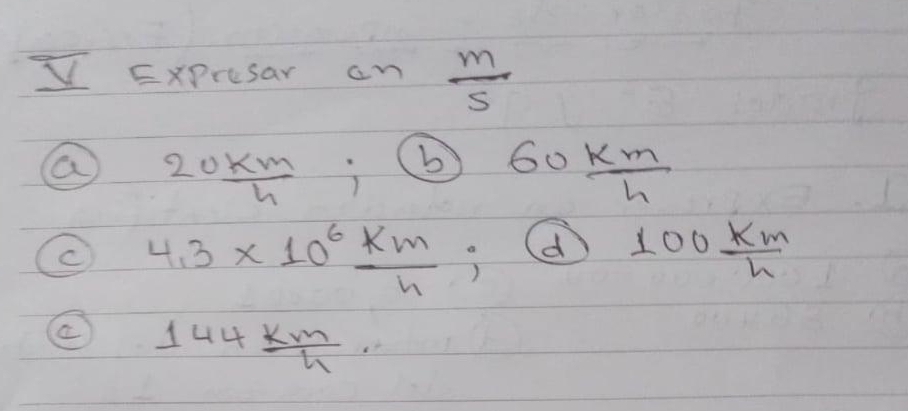 V Expresar en m/s
a 20 Km/h ; b 60 Km/h
c 4,3 x 10⁶ Km/h ; d 100 Km/h
e 144 Km/h.